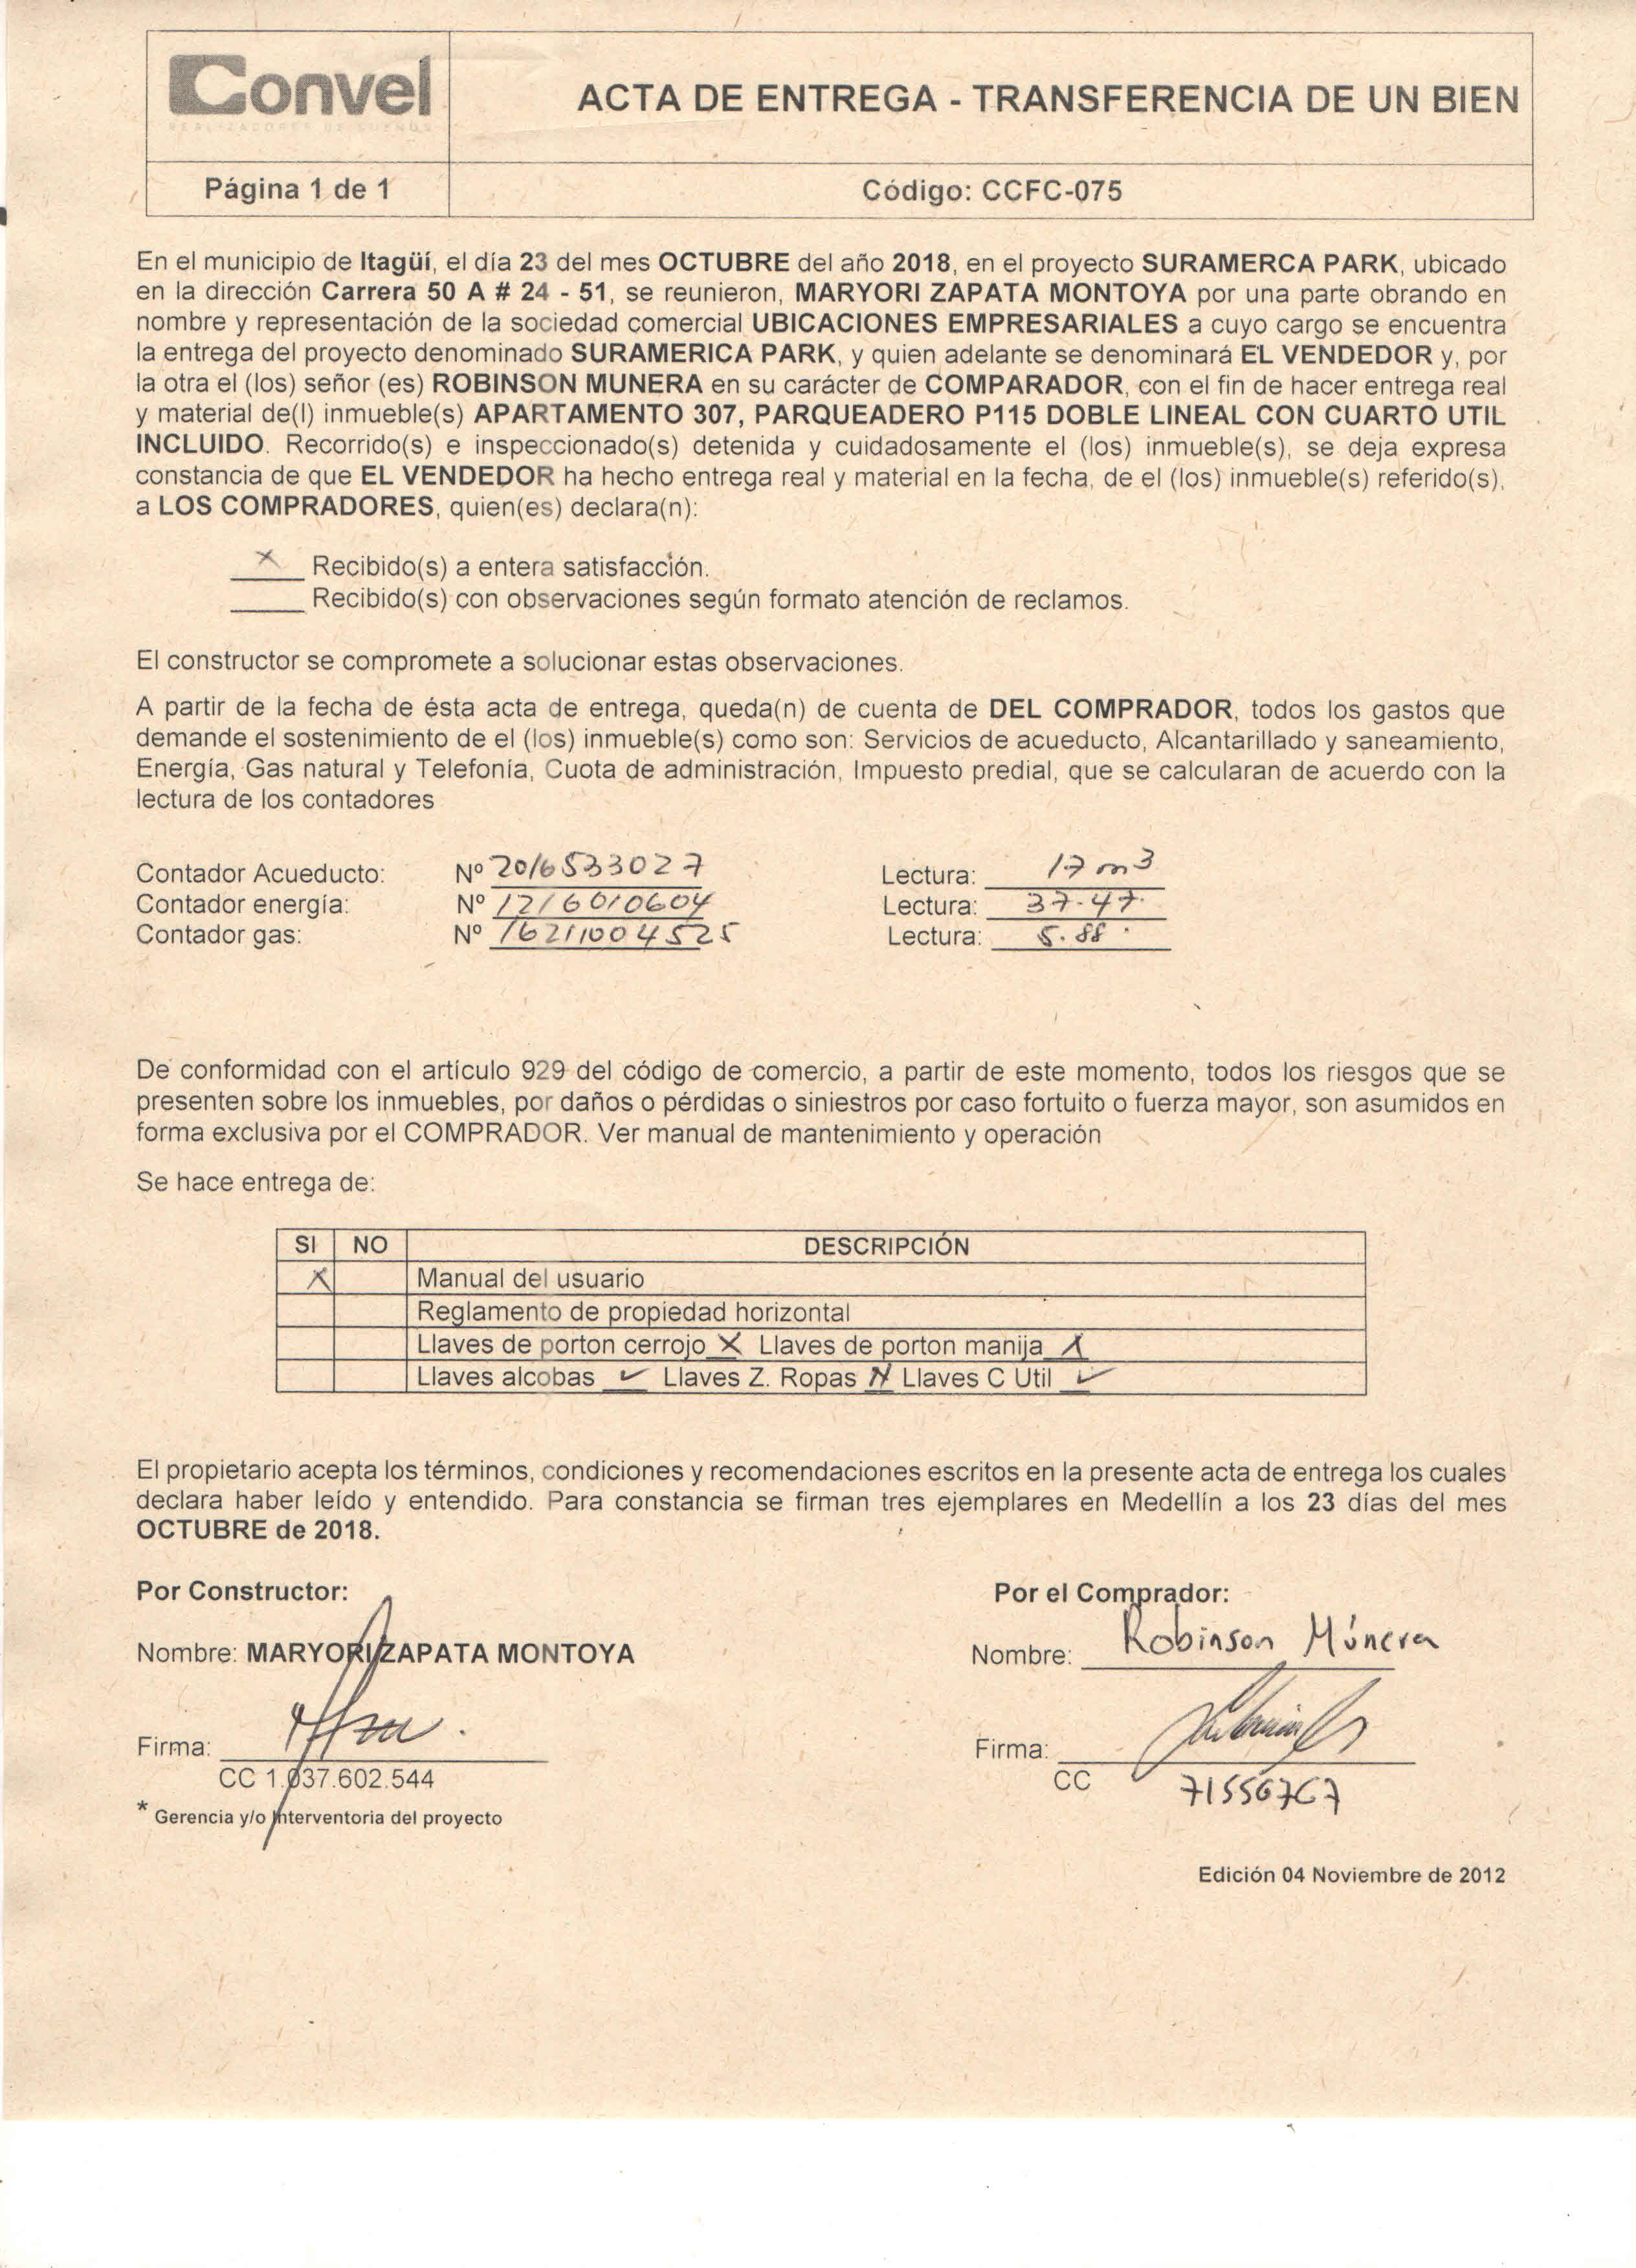 Convel
REALIZADORES DE SUEÑOS
ACTA DE ENTREGA - TRANSFERENCIA DE UN BIEN
Página 1 de 1
Código: CCFC-075
En el municipio de Itagüí, el día 23 del mes OCTUBRE del año 2018, en el proyecto SURAMERCA PARK, ubicado
en la dirección Carrera 50 A # 24 - 51, se reunieron, MARYORI ZAPATA MONTOYA por una parte obrando en
nombre y representación de la sociedad comercial UBICACIONES EMPRESARIALES a cuyo cargo se encuentra
la entrega del proyecto denominado SURAMERICA PARK, y quien adelante se denominará EL VENDEDOR y, por
la otra el (los) señor (es) ROBINSON MUNERA en su carácter de COMPARADOR, con el fin de hacer entrega real
y material de(l) inmueble(s) APARTAMENTO 307, PARQUEADERO P115 DOBLE LINEAL CON CUARTO UTIL
INCLUIDO. Recorrido(s) e inspeccionado(s) detenida y cuidadosamente el (los) inmueble(s), se deja expresa
constancia de que EL VENDEDOR ha hecho entrega real y material en la fecha, de el (los) inmueble(s) referido(s),
a LOS COMPRADORES, quien(es) declara(n):
X Recibido(s) a entera satisfacción.
Recibido(s) con observaciones según formato atención de reclamos.
El constructor se compromete a solucionar estas observaciones.
A partir de la fecha de ésta acta de entrega, queda(n) de cuenta de DEL COMPRADOR, todos los gastos que
demande el sostenimiento de el (los) inmueble(s) como son: Servicios de acueducto, Alcantarillado y saneamiento,
Energía, Gas natural y Telefonía, Cuota de administración, Impuesto predial, que se calcularan de acuerdo con la
lectura de los contadores
Contador Acueducto: Nº 2016533027 Lectura: 17 m3
Contador energía: Nº 1216010604 Lectura: 37.47.
Contador gas: Nº 16211004525 Lectura: 5.88.
De conformidad con el artículo 929 del código de comercio, a partir de este momento, todos los riesgos que se
presenten sobre los inmuebles, por daños o pérdidas o siniestros por caso fortuito o fuerza mayor, son asumidos en
forma exclusiva por el COMPRADOR. Ver manual de mantenimiento y operación
Se hace entrega de:
SI NO DESCRIPCIÓN
X Manual del usuario
Reglamento de propiedad horizontal
Llaves de porton cerrojo X Llaves de porton manija X
Llaves alcobas ✓ Llaves Z. Ropas N Llaves C Util ✓
El propietario acepta los términos, condiciones y recomendaciones escritos en la presente acta de entrega los cuales
declara haber leído y entendido. Para constancia se firman tres ejemplares en Medellín a los 23 días del mes
OCTUBRE de 2018.
Por Constructor:
Por el Comprador:
Nombre: MARYORI ZAPATA MONTOYA
Nombre: Robinson Múnera
Firma:
Firma:
CC 1.037.602.544
CC 71556767
* Gerencia y/o Interventoria del proyecto
Edición 04 Noviembre de 2012